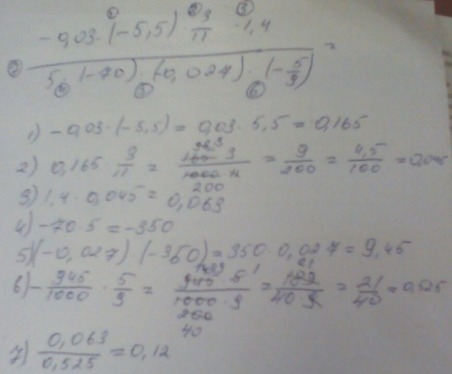 -0,03·(-5,5) · 3/11 · 1,4
5 · (-70) · (-0,027) · (-5/9) =
1) -0,03·(-5,5) = 0,03·5,5 = 0,165
2) 0,165 · 3/11 = 165·3/1000·11 = 9/200 = 4,5/100 = 0,045
3) 1,4·0,045 = 0,063
4) -70·5 = -350
5) (-0,027)·(-350) = 350·0,027 = 9,45
6) - 945/1000 · 5/9 = 945·5/1000·9 = 189/40·9 = 21/40 = 0,525
7) 0,063/0,525 = 0,12